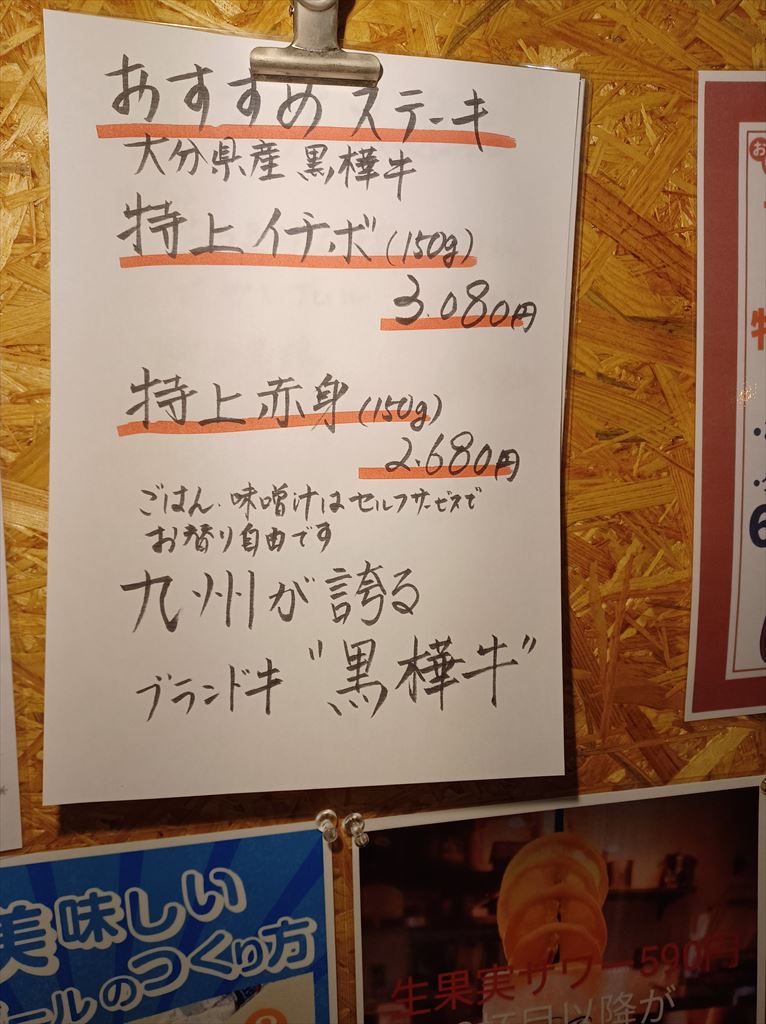 おすすめ ステーキ
大分県産 黒樺牛
特上イチボ(150g)
3.080円
特上赤身(150g)
2.680円
ごはん.味噌汁はセルフサービスで
お替り自由です
九州が誇る
ブランド牛 "黒樺牛"
美味しい
ールのつくり方
生果実サワー590円
目以降が